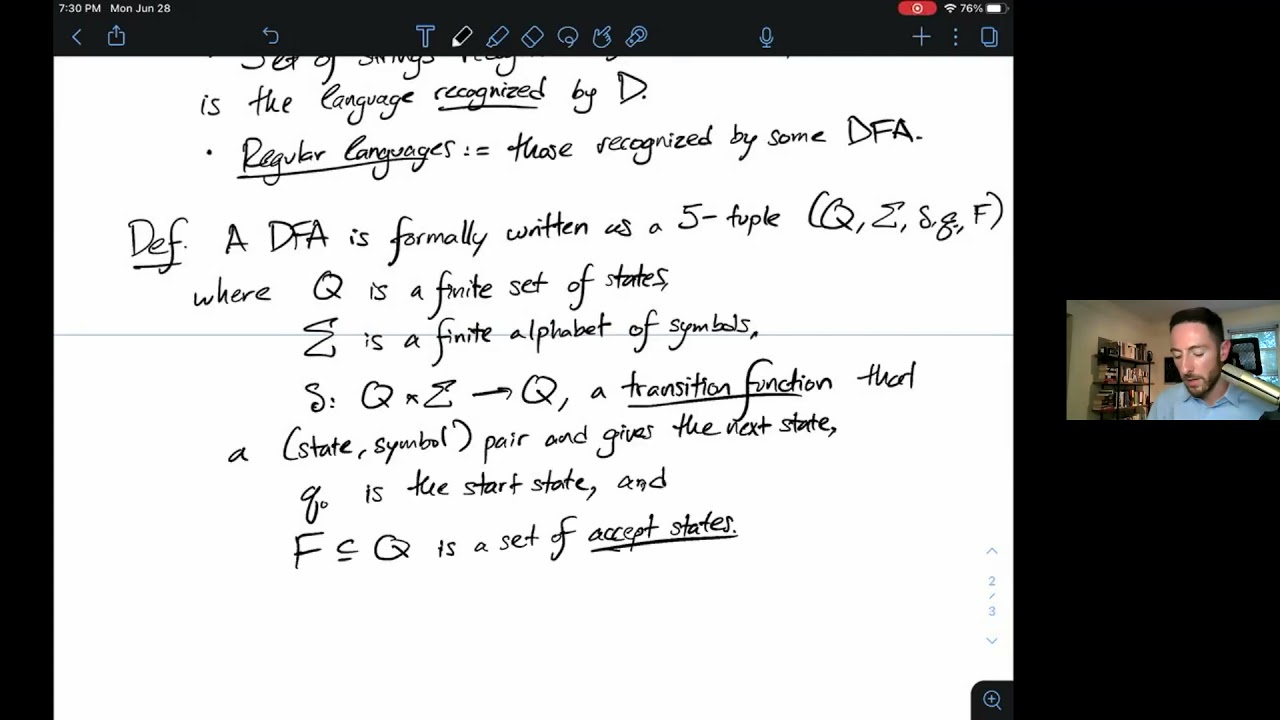 7:30 PM Mon Jun 28
76%
T
· Set of strings
is the language recognized by D.
· Regular languages := those recognized by some DFA.
Def. A DFA is formally written as a 5-tuple (Q, Σ, δ, q₀, F)
where Q is a finite set of states,
Σ is a finite alphabet of symbols,
δ: Q × Σ → Q, a transition function that
a (state, symbol) pair and gives the next state,
q₀ is the start state, and
F ⊆ Q is a set of accept states.
2
/
3